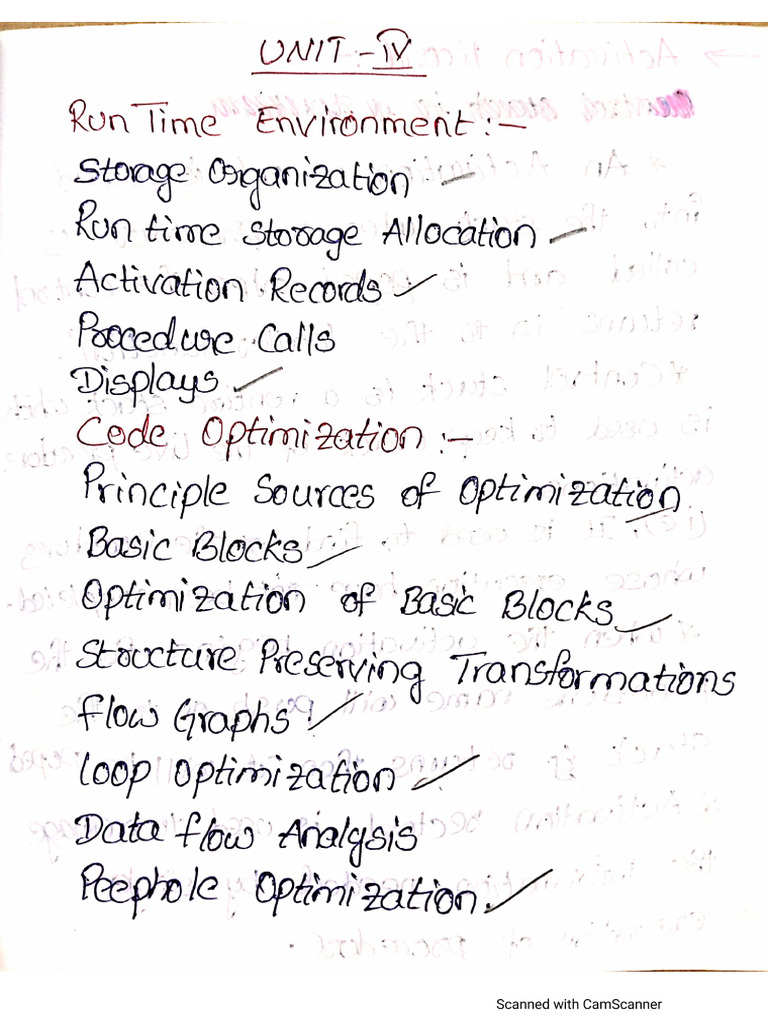 UNIT-IV
Run Time Environment:-
Storage Organization
Run time Storage Allocation
Activation Records
Procedure Calls
Displays
Code Optimization:-
Principle Sources of Optimization
Basic Blocks
Optimization of Basic Blocks
Structure Preserving Transformations
Flow Graphs
Loop Optimization
Data flow Analysis
Peephole Optimization
Scanned with CamScanner